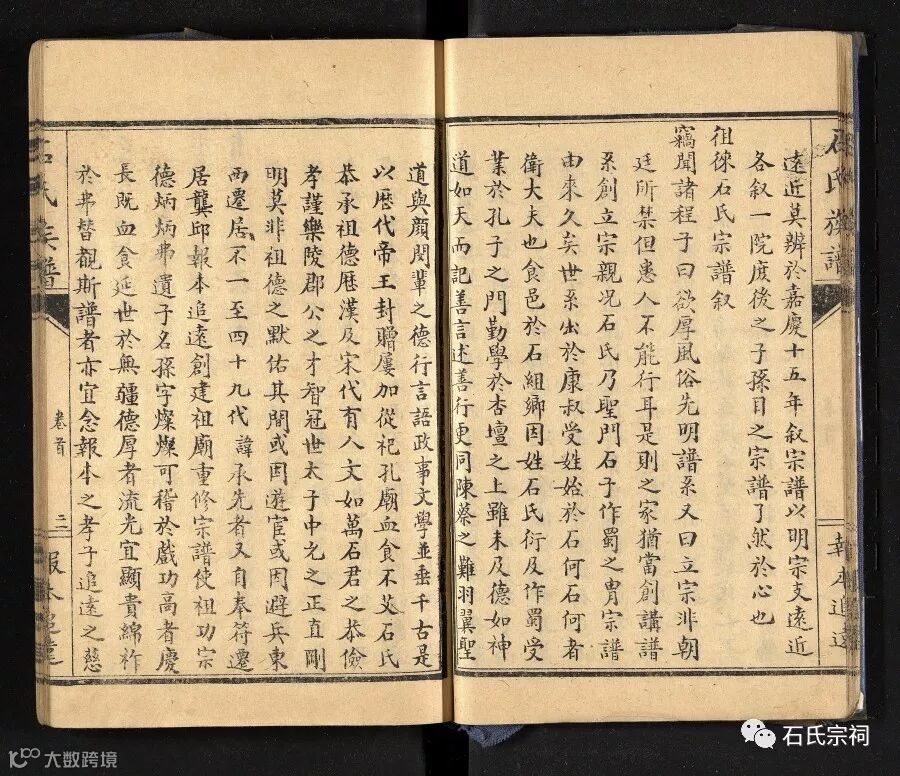 石氏族譜
報本追遠
遠近莫辨於嘉慶十五年叙宗譜以明宗支遠近
各叙一院度後之子孫目之宗譜了然於心也
徂徠石氏宗譜叙
竊聞諸程子曰欲厚風俗先明譜系又曰立宗非朝
廷所禁但患人不能行耳是則之家猶當創講譜
系創立宗親况石氏乃聖門石子作蜀之胄宗譜
由來久矣世系出於康叔受姓始於石何石何者
衛大夫也食邑於石組鄉因姓石氏衍及作蜀受
業於孔子之門勤學於杏壇之上雖未及德如神
道如天而記善言述善行更同陳蔡之難羽翼聖
道與顏閔輩之德行言語政事文學並垂千古是
以歷代帝王封贈屢加從祀孔廟血食不艾石氏
恭承祖德歷漢及宋代有人文如萬石君之恭儉
孝謹樂陵郡公之才智冠世太子中允之正直剛
明莫非祖德之默佑其間或因遊宦或因避兵東
西遷居不一至四十九代諱承先者又自奉符遷
居龔邱報本追遠創建祖廟重修宗譜使祖功宗
德炳炳弗遺子名孫字燦燦可稽於戲功高者慶
長既血食延世於無疆德厚者流光宜顯貴綿祚
於弗替觀斯譜者亦宜念報本之孝子追遠之慈
石氏族譜
卷首
三
報本追遠
石氏宗祠
大数跨境